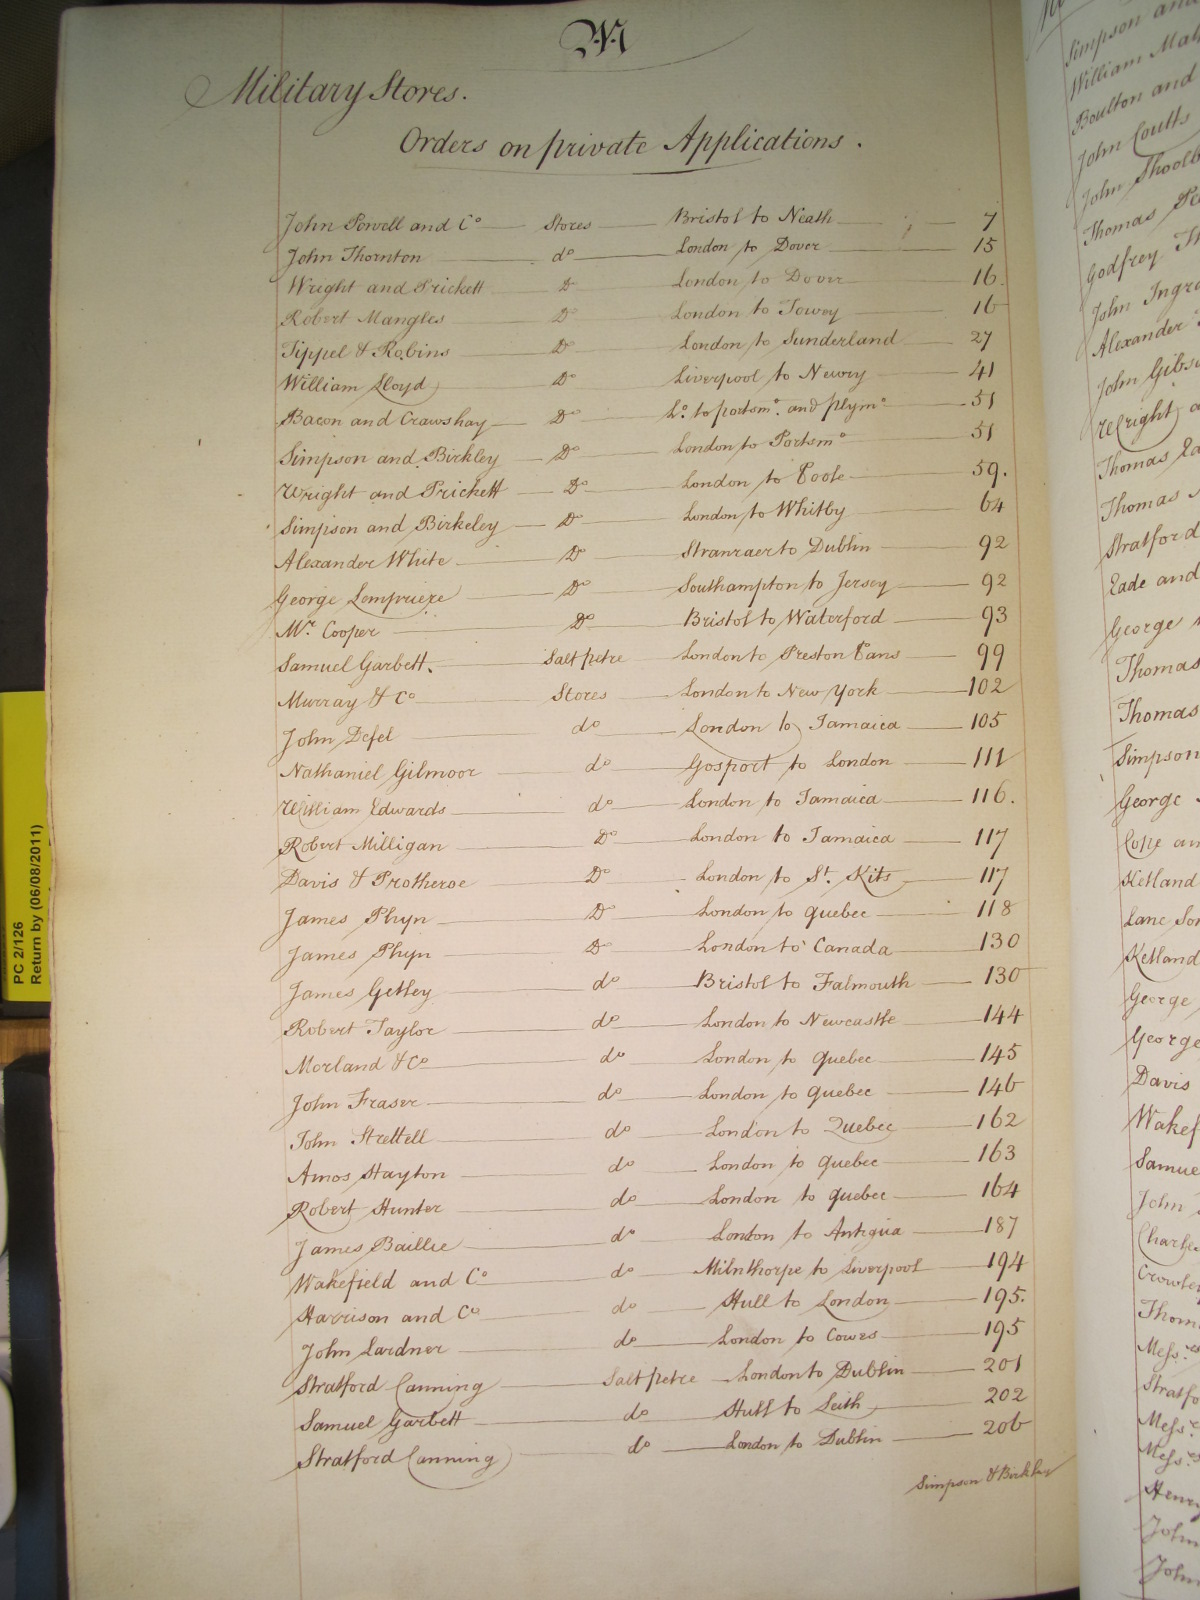 M
Military Stores.
Orders on private Applications.
John Powell and Co Stores Bristol to Neath 7
John Thornton do London to Dover 15
Wright and Prickett Do London to Dover 16.
Robert Mangles Do London to Fowey 16
Tippel & Robins Do London to Sunderland 27
William Lloyd Do Liverpool to Newry 41
Bacon and Crawshay Do Lo. to portsmo. and plymo 51
Simpson and Birkley Do London to Portsmo 51
Wright and Prickett Do London to Poole 59.
Simpson and Birkeley Do London to Whitby 64
Alexander White Do Stranraer to Dublin 92
George Lempriere Do Southampton to Jersey 92
Mr. Cooper Do Bristol to Waterford 93
Samuel Garbett. Salt petre London to Preston Pans 99
Murray & Co Stores London to New York 102
John Defel do London to Jamaica 105
Nathaniel Gilmoor do Gosport to London 111
William Edwards do London to Jamaica 116.
Robert Milligan Do London to Jamaica 117
Davis & Protheroe Do London to St. Kits 117
James Phyn Do London to quebec 118
James Phyn Do London to Canada 130
James Getley do Bristol to Falmouth 130
Robert Taylor do London to Newcastle 144
Morland & Co do London to quebec 145
John Fraser do London to quebec 146
John Strettell do London to Quebec 162
Amos Hayton do London to quebec 163
Robert Hunter do London to quebec 164
James Baillie do London to Antigua 187
Wakefield and Co do Milnthorpe to Liverpool 194
Harrison and Co do Hull to London 195.
John Lardner do London to Cowes 195
Stratford Canning Salt petre London to Dublin 201
Samuel Garbett do Hull to Leith 202
Stratford Canning do London to Dublin 206
Simpson & Birkley
PC 2/126
Return by (06/08/2011)
Simpson and
William
Boulton and
John Coutts
John
Thomas
Godfrey
John
Alexander
John
Wright
Thomas
Thomas
Stratford
Eade and
George
Thomas
Thomas
Simpson
George
Cope
Ketland
Lane
Ketland
George
George
Davis
John
Messrs
Messrs
Messrs
John
John